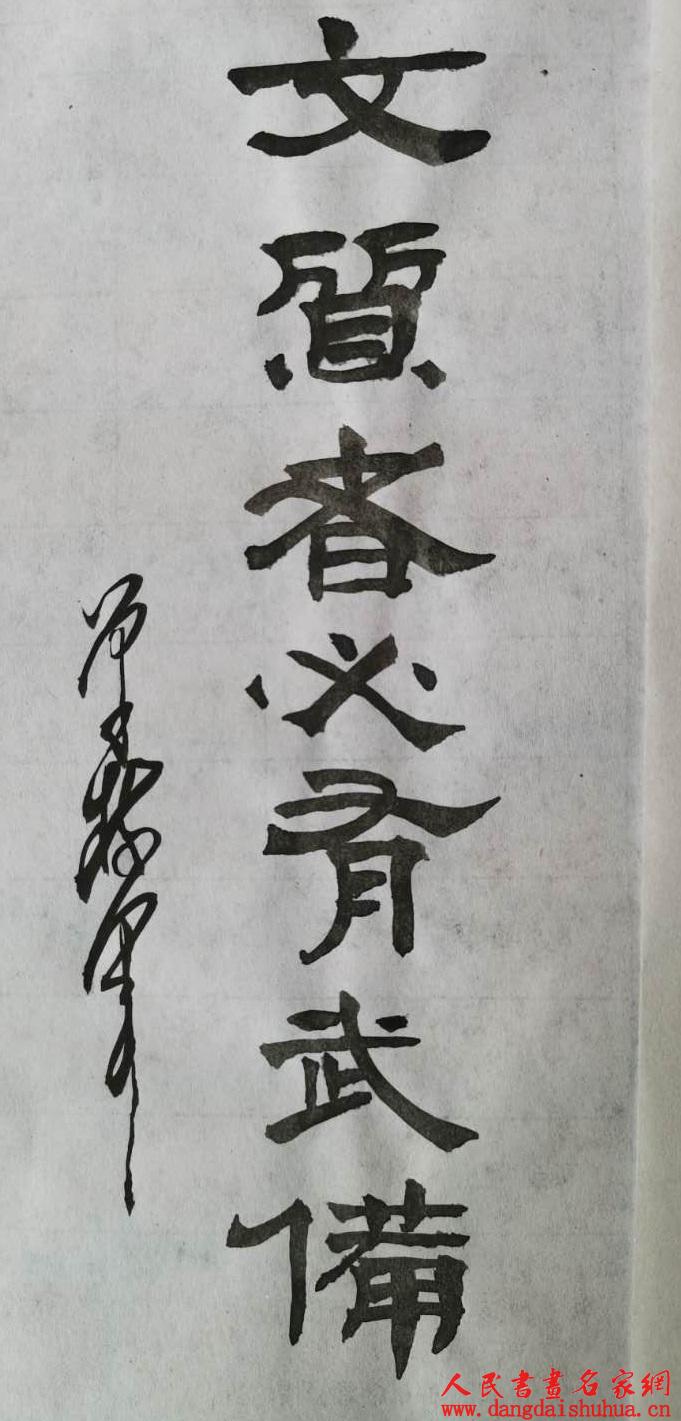 文質者必有武備
人民書畫名家網
www.dangdaishuhua.cn